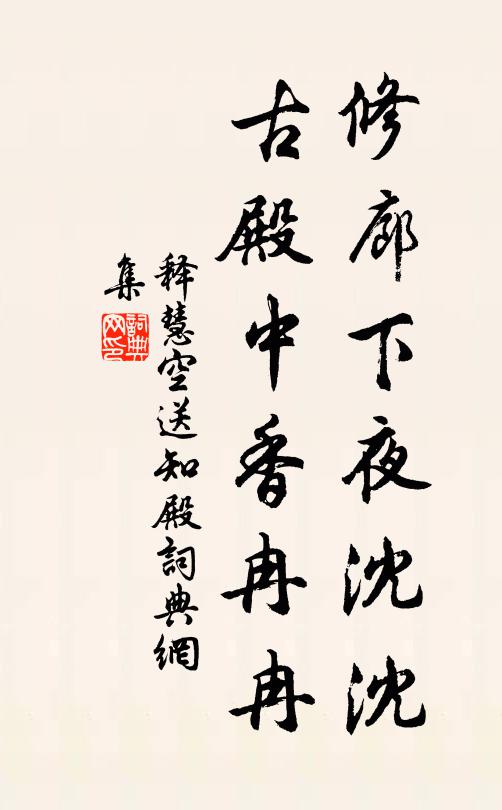 修廊下夜沈沈
古殿中香冉冉
释慧空送知殿詞典網
集
詞典
网印